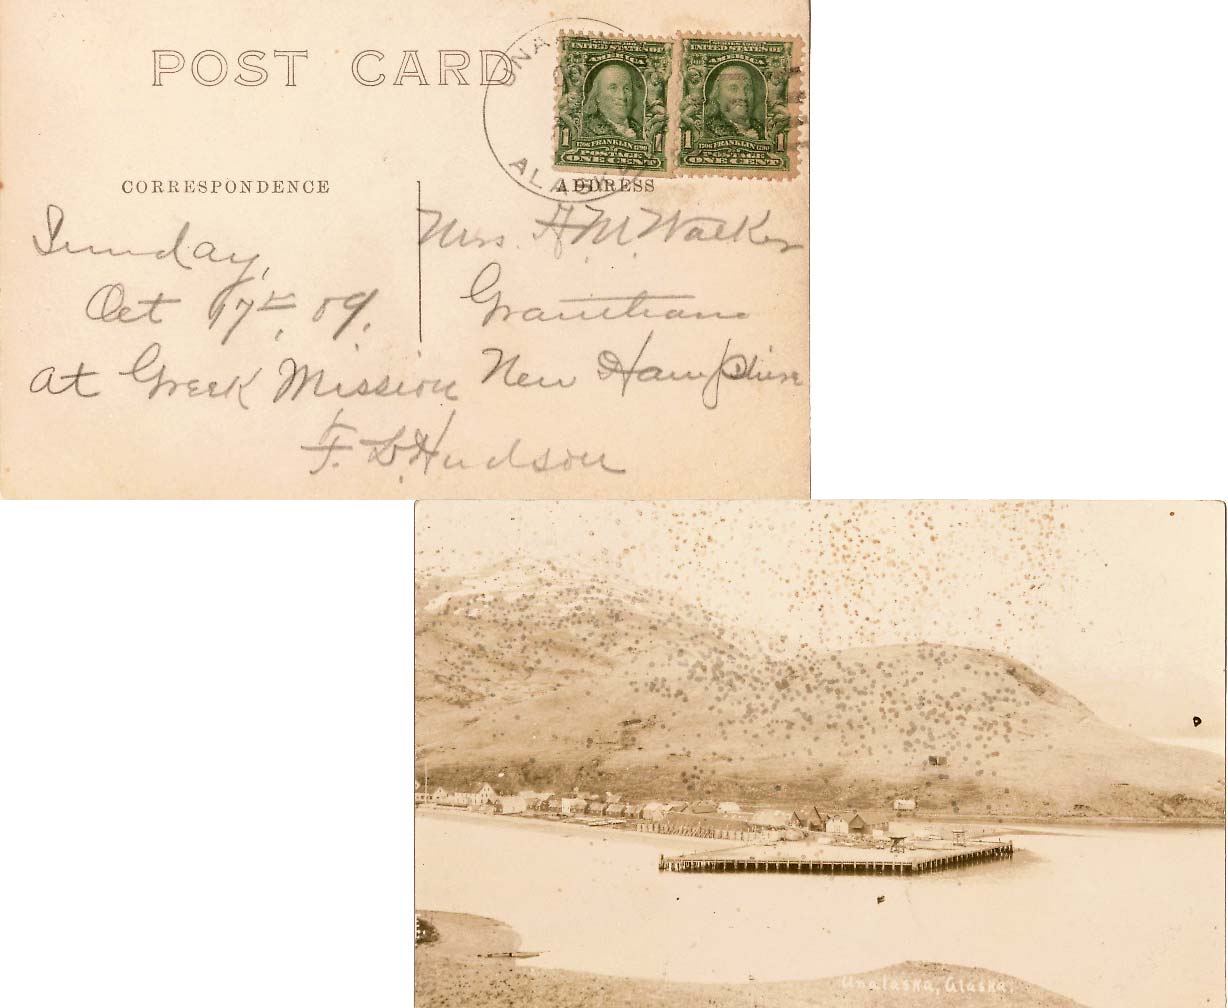 POST CARD
UNA
ALASKA
SERIES 1902
UNITED STATES OF
AMERICA
1
1706 FRANKLIN 1790
1
POSTAGE
ONE CENT
SERIES 1902
UNITED STATES OF
AMERICA
1
1706 FRANKLIN 1790
1
POSTAGE
ONE CENT
CORRESPONDENCE
ADDRESS
Sunday,
Oct 17th, 09.
at Greek Mission
F. L. Hudson
Mrs. H. M. Walker
Grantham
New Hampshire
Unalaska, Alaska.